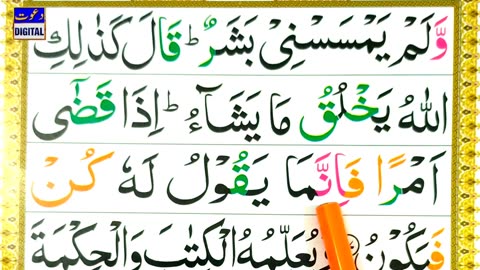 دعوت
DIGITAL
وَّلَمْ يَمْسَسْنِىْ بَشَرٌ ؕ قَالَ كَذٰلِكِ
اللّٰهُ يَخْلُقُ مَا يَشَآءُ ؕ اِذَا قَضٰٓى
اَمْرًا فَاِنَّمَا يَقُوْلُ لَهٗ كُنْ
فَيَكُوْنُ وَيُعَلِّمُهُ الْكِتٰبَ وَالْحِكْمَةَ